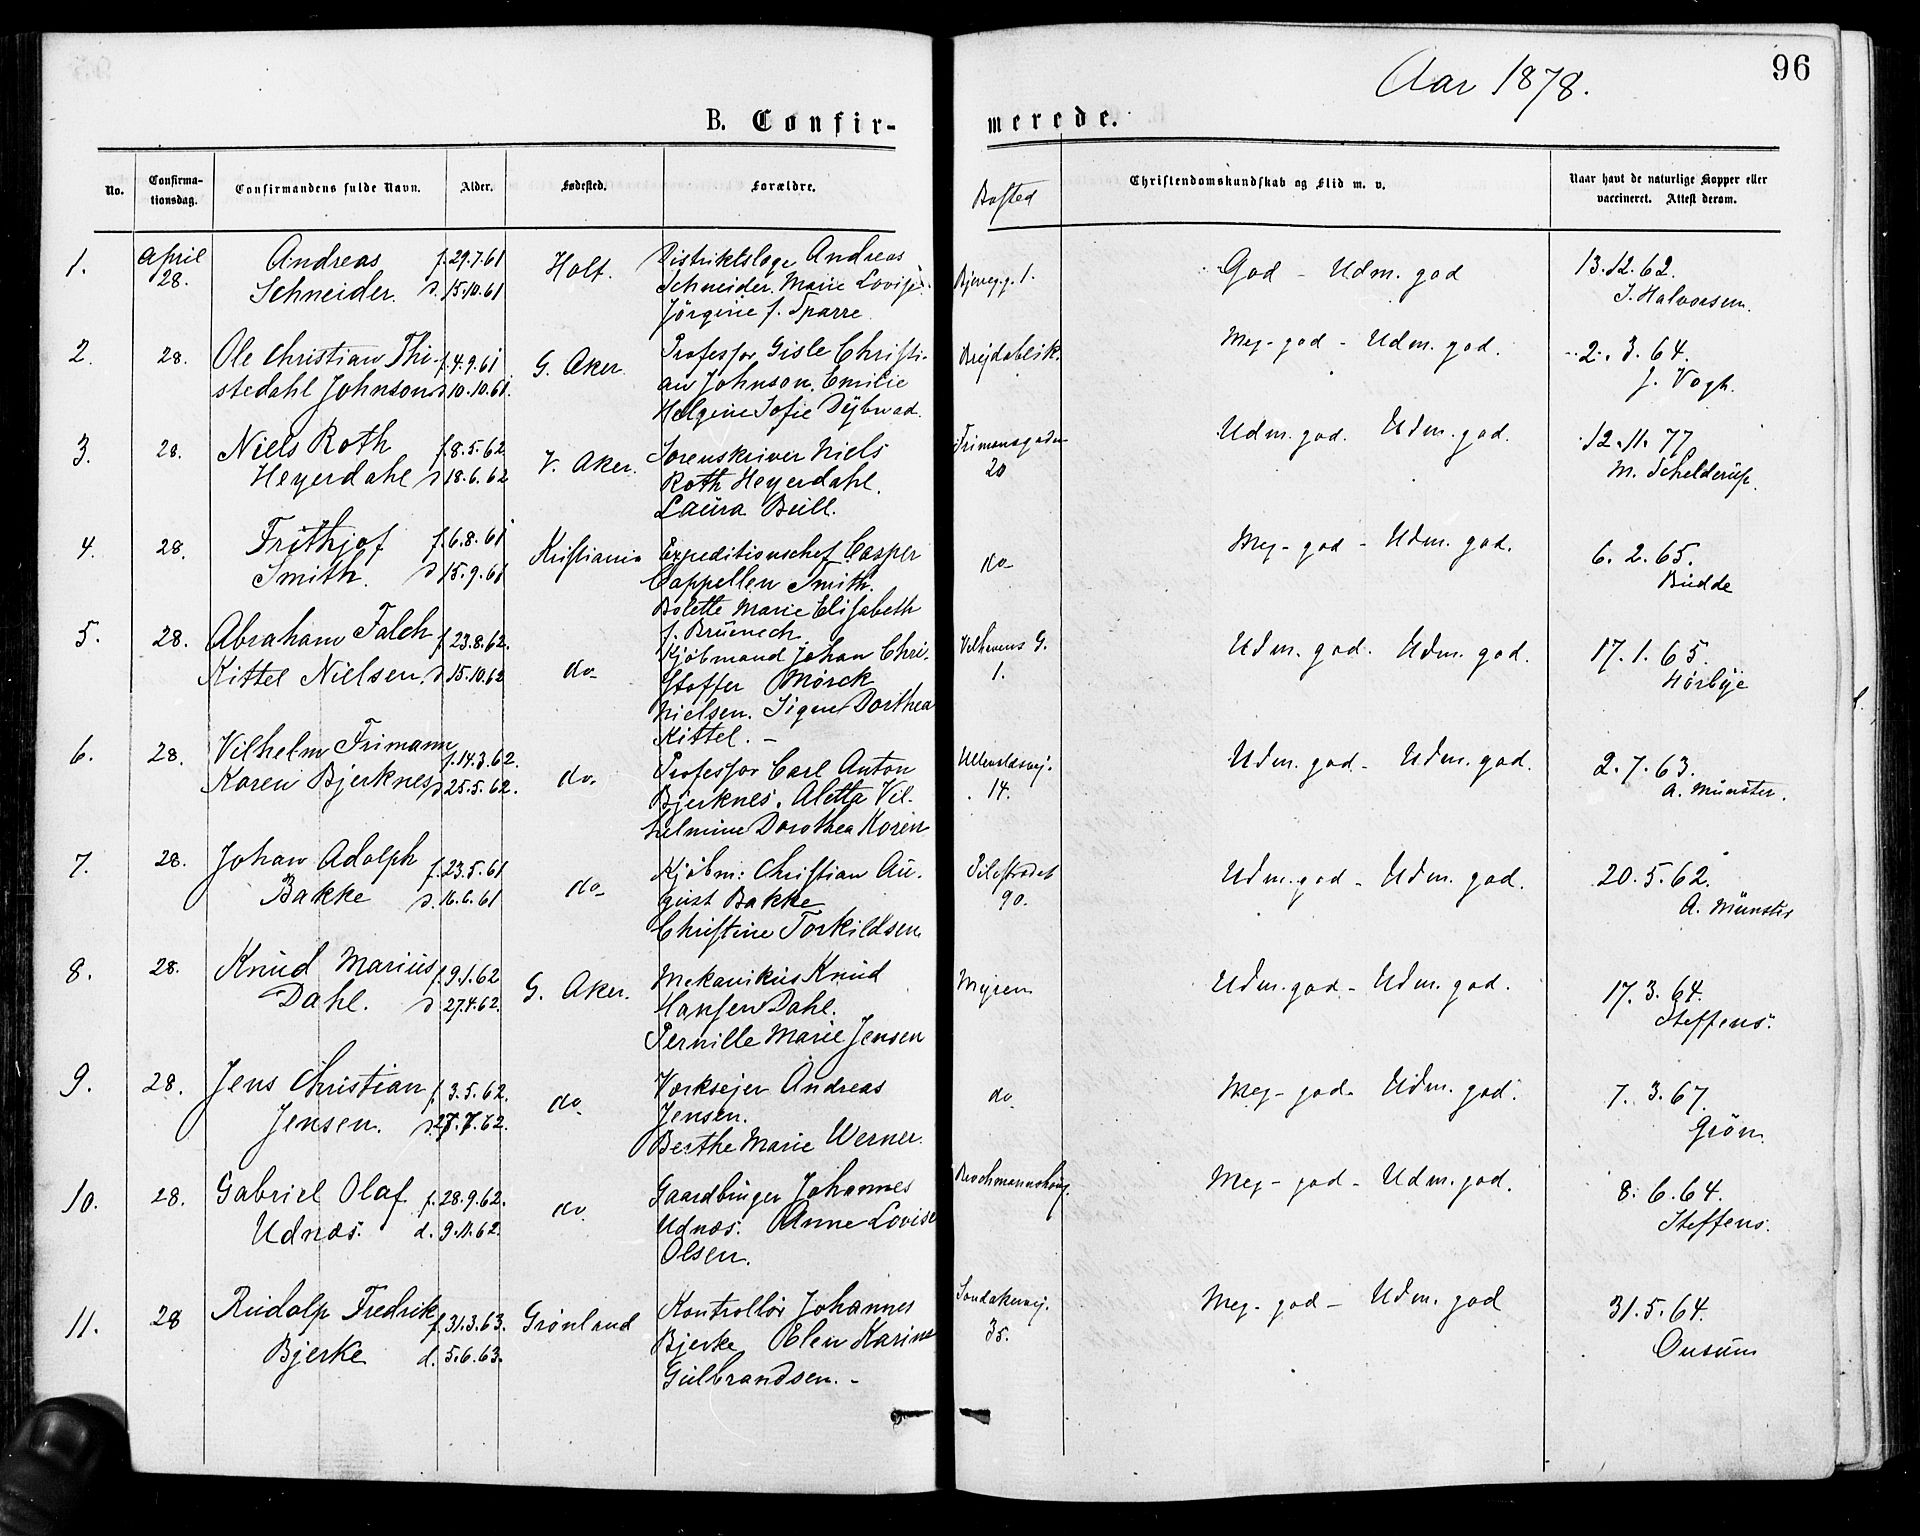 96
Aar 1878.
B. Confir-
merede.
No.
Confirma-
tionsdag.
Confirmandens fulde Navn.
Alder.
Fødested.
Forældre.
Bosted
Christendomskundskab og Flid m. v.
Naar havt de naturlige Kopper eller
vaccineret. Attest derom.
1.
April
28.
Andreas
Schneider.
f. 29.7.61
d. 15.10.61
Holt.
Distriktslæge Andreas
Schneider. Marie Lovise
Jörgine f. Sparre.
1.
God - Udm. god
13.12.62.
J. Halvorsen.
2.
28.
Ole Christian Thi-
stedahl Johnson
f. 4.9.61
d. 10.10.61.
G. Aker.
Professor Gisle Christi-
an Johnson. Emilie
Helgine Sofie Dybwad.
Breidablik.
Meg- god - Udm. god.
2. 3. 64.
J. Vogt.
3.
28.
Niels Roth
Heyerdahl
f. 8.5.62
d. 18.6.62
V. Aker.
Sorenskriver Niels
Roth Heyerdahl.
Laura Bull.
Frimansgaden
20
Udm. god. Udm. god.
12. 11. 77
M. Schelderup.
4.
28.
Frithjof
Smith.
f. 6.8.61
d. 15.9.61
Kristiania
Expeditionschef Casper
Cappelen Smith.
Bolette Marie Elisabeth
f. Brünech
do
Meg- god - Udm. god.
6. 2. 65.
Budde
5.
28.
Abraham Falch
Kittel Nielsen.
f. 23.8.62.
d. 15.10.62
do
Kjöbmand Johan Chri-
stoffer Mörck
Nielsen. Signe Dorthea
Kittel. -
G.
1.
Udm. god. Udm. god.
17. 1. 65.
Hörbye
6.
28.
Vilhelm Frimann
Koren Bjerknes
f. 14.3.62.
d. 25.5.62.
do.
Professor Carl Anton
Bjerknes. Aletta Vil-
helmine Dorothea Koren
Ullevoldsvej.
14.
Udm. god. Udm. god.
2. 7. 63.
A. Münster.
7.
28.
Johan Adolph
Bakke
f. 23.5.61
d. 16.6.61
do
Kjöbm: Christian Au-
gust Bakke
Christine Torkildsen.
Pilestrædet
90.
Udm. god - Udm. god.
20. 5. 62.
A. Münster
8.
28.
Knud Marius
Dahl.
f. 9.1.62
d. 27.4.62.
G. Aker.
Mekanikus Knud
Hansen Dahl.
Pernille Marie Jensen
Myren
Udm. god - Udm. god.
17. 3. 64.
Steffens.
9.
28.
Jens Christian
Jensen.
f. 3.5.62.
d. 27.7.62.
do
Værksejer Andreas
Jensen.
Berthe Marie Werner.
do
Meg- god. Udm. god.
7. 3. 67.
Grön
10.
28.
Gabriel Olaf
Udnæs.
f. 28.9.62.
d. 9.11.62.
do
Gaardbruger Johannes
Udnæs. Anne Lovise
Olsen.
Meg- god - Udm. god.
8. 6. 64.
Steffens.
11.
28
Rudolp Fredrik
Bjerke
f. 31.3.63.
d. 5.6.63.
Grönland
Kontrollör Johannes
Bjerke Elen Karine
Gulbrandsen. -
35.
Meg- god - Udm. god
31. 5. 64.
Ousum